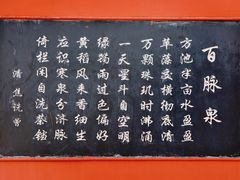 百脉泉
方池半亩水盈盈
草藻交横彻底清
万颗珠玑时沸涌
一天星斗自空明
绿筠雨过色偏好
黄稻风来香细生
应识寒泉分济脉
倚栏闲自洗茶铛
清 焦